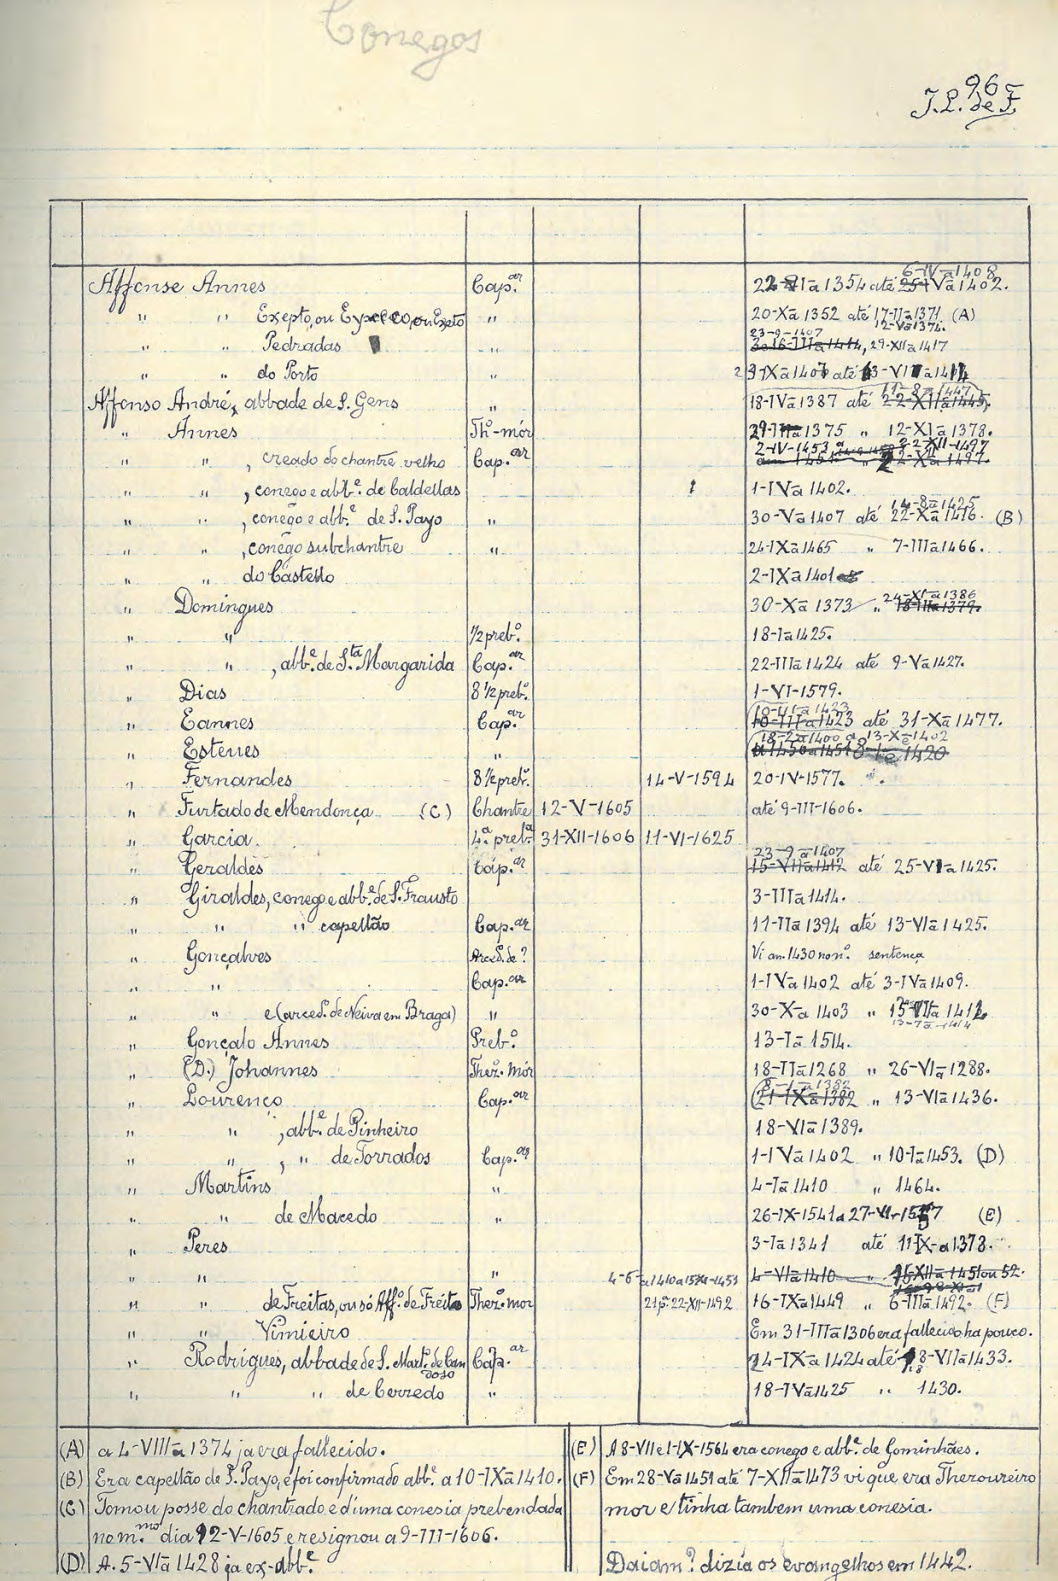 Conegos
96
J.L. de F.
Affonso Annes Cap.ar 22- Ia 1354 até 6-IVa 1408 25-IVa 1402.
" " Exepto, ou Expecco, ou Expto " 20-Xa 1352 até 17-IIa 1371 12-Va 1374. (A)
" " Pedradas " 23-9-1407 3a 16-IIIa 1414, 29-XIIa 1417
" " do Porto " 1407 até 1414
Affonso André, abbade de S. Gens " 18-IVa 1387 até 11-8a 1447 22-XIIa 1445.
" Annes Th.º-mór 29- 1375 " 12-XIa 1378.
" " , creado do chantre velho Cap.ar 2-IV-1453 a 22-XII-1497 em 1454 " 22-XII-1497.
" " , conego e abb.e de Caldellas 1-IVa 1402.
" " , conego e abb.e de S. Payo " 30-Va 1407 até 14-8a 1425 22-Xa 1416. (B)
" " , conego subchantre " 24-IXa 1465 " 7-IIIa 1466.
" " do Castello 2-IXa 1401
" Domingues 30-Xa 1373 " 24-XIa 1386 18-IIIa 1379.
" " 1/2 preb.º 18-Ia 1425.
" " , abb.e de S.ta Margarida Cap.ar 22-IIIa 1424 até 9-Va 1427.
" Dias 8 1/2 preb.º 1-VI-1579.
" Eannes Cap.ar 10-III a 1423 até 31-Xa 1477.
" Esteves " 18-2a 1400 a 13-X-1402 a 1450 a 1451 1420
" Fernandes 8 1/2 preb.º 14-V-1594 20-IV-1577.
" Furtado de Mendonça (C) Chantre 12-V-1605 até 9-III-1606.
" Garcia. 4.ª preb.ª 31-XII-1606 11-VI-1625
" Geraldes Cap.ar 23-9a 1407 15-VIIa 1412 até 25-VIa 1425.
" Giraldes, conego e abb.e de S. Frausto 3-IIIa 1414.
" " " capellão Cap.ar 11-IIa 1394 até 13-VIa 1425.
" Gonçalves Arced.º de ? Vi am 1430 no n.º sentença
" " Cap.ar 1-IVa 1402 até 3-IVa 1409.
" " e (arced.º de Neiva em Braga) " 30-Xa 1403 " 15-VIIa 1412. 13-7a-1414
" Gonçalo Annes Preb.º 13-Ia 1514.
" (D.) Johannes Thez.º mór 18-IIa 1268 " 26-VIa 1288.
" Lourenço Cap.ar 8-1-a 1382 21-IXa 1382 " 13-VIa 1436.
" " , abb.e de Pinheiro 18-VIa 1389.
" " , " de Torrados Cap.ar 1-IVa 1402 " 10-Ia 1453. (D)
" Martins " 4-Ia 1410 " 1464.
" " de Macedo " 26-IX-1541 a 27-VI- (E)
" Peres 3-Ia 1341 até 11-IX-a 1373.
" " " 4-6-a 1410 a 1453 4-VIa 1410 " 16-XIIa 1451 ou 52.
" " de Freitas, ou só Aff.º de Freitas Thez.º mor 21 22-XII-1492 16-IXa 1449 " 6-IIIa 1492. (F)
" " Vimieiro Em 31-IIIa 1306 era fallecido ha pouco.
" Rodrigues, abbade de S. Mart.º de Candoso Cap.ar 24-IXa 1424 até 18-VIIa 1433.
" " " de Cerredo " 18-IVa 1425 " 1430.
(A) a 4-VIIIa 1374 ja era fallecido.
(B) Era capellão de S. Payo, e foi confirmado abb.e a 10-IXa 1410.
(C) Tomou posse do chantrado e d'uma conesia prebendada
no m.mo dia 12-V-1605 e resignou a 9-III-1606.
(D) A. 5-VIa 1428 ja ex-abb.e
(E) A 8-VII e 1-IX-1564 era conego e abb.e de Gominhães.
(F) Em 28-Va 1451 até 7-XIIa 1473 vi que era Thezoureiro
mor e tinha tambem uma conesia.
Daiam? dizia os evangelhos em 1442.